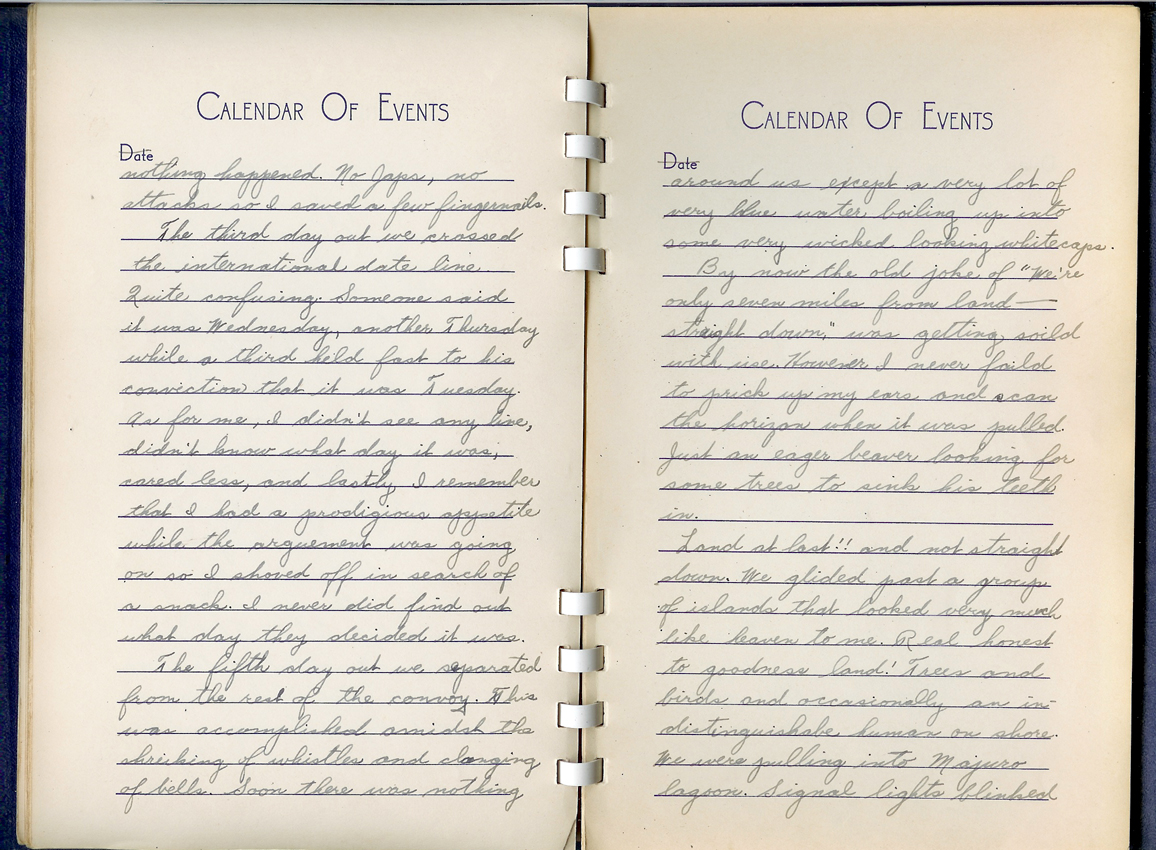 CALENDAR OF EVENTS
Date
nothing happened. No Japs, no
attacks so I saved a few fingernails.
The third day out we crossed
the international date line.
Quite confusing. Someone said
it was Wednesday, another Thursday
while a third held fast to his
conviction that it was Tuesday.
As for me, I didn't see any line,
didn't know what day it was,
cared less, and lastly I remember
that I had a prodigious appetite
while the arguement was going
on so I shoved off in search of
a snack. I never did find out
what day they decided it was.
The fifth day out we separated
from the rest of the convoy. This
was accomplished amidst the
shrieking of whistles and clanging
of bells. Soon there was nothing
CALENDAR OF EVENTS
Date
around us except a very lot of
very blue water boiling up into
some very wicked looking whitecaps.
By now the old joke of "We're
only seven miles from land—
straight down," was getting soild
with use. However I never faild
to prick up my ears and scan
the horizon when it was pulled.
Just an eager beaver looking for
some trees to sink his teeth
in.
Land at last!! and not straight
down. We glided past a group
of islands that looked very much
like heaven to me. Real honest
to goodness land! Trees and
birds and occasionally an in-
distinguishabe human on shore.
We were pulling into Majuro
lagoon. Signal lights blinked